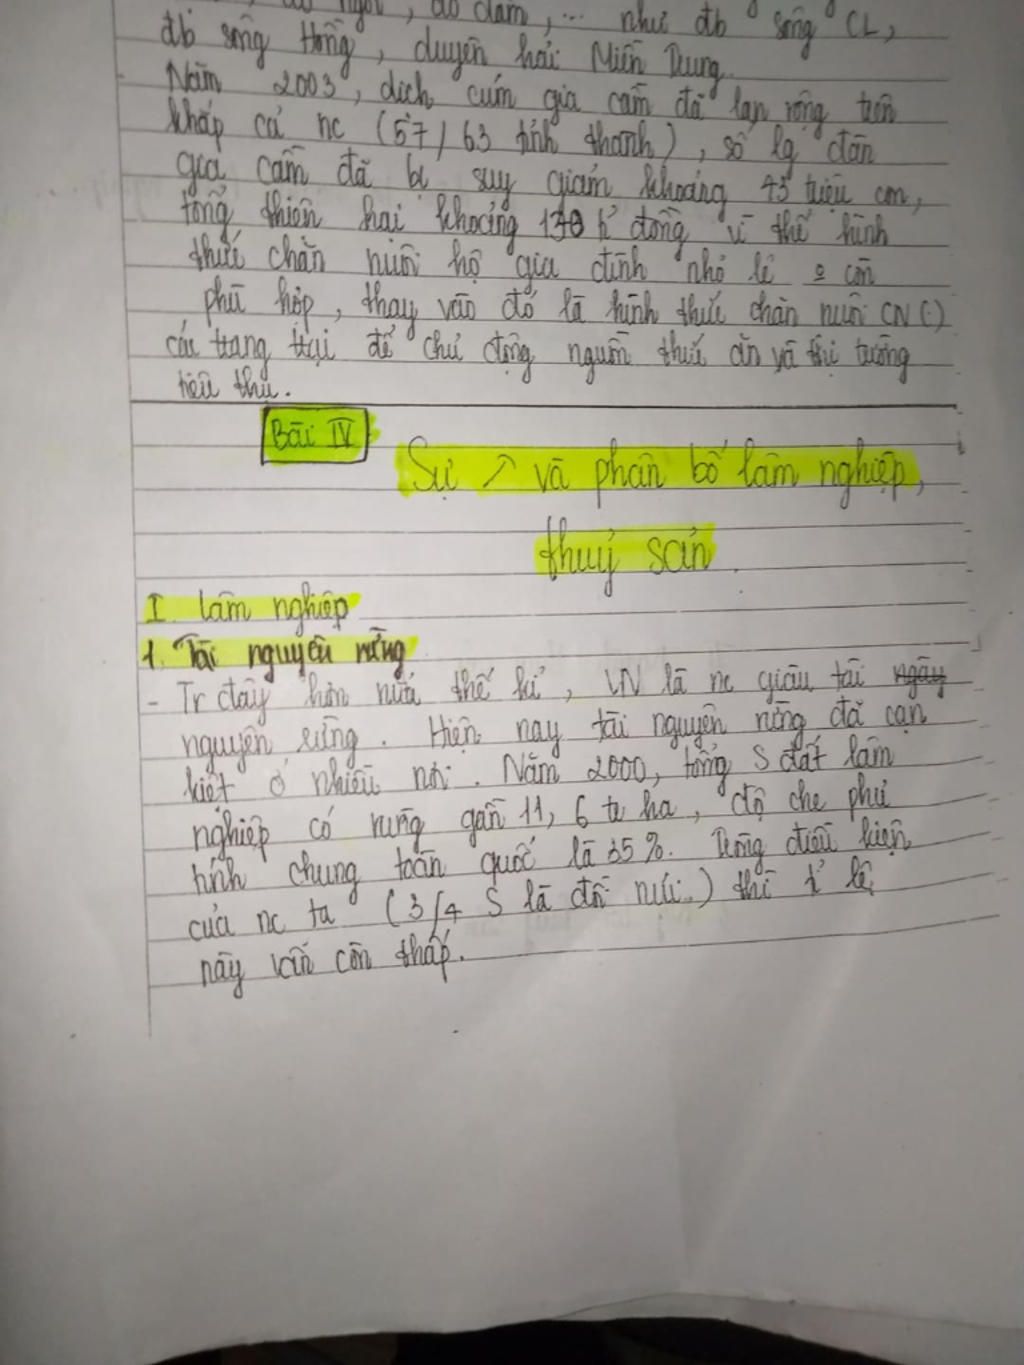 như đb sông CL,
đb sông Hồng, duyên hải Miền Trung
Năm 2003, dịch cúm gia cầm đã lan rộng trên
khắp cả nc (57/63 tỉnh thành), số lg đàn
gia cầm đã bị suy giảm khoảng 45 triệu con,
tổng thiên hại khoảng tỉ đồng vì thế hình
thức chăn nuôi hộ gia đình nhỏ lẻ còn
phù hợp, thay vào đó là hình thức chăn nuôi CN (:)
các trang trại để chủ động nguồn thức ăn và thị trường
tiêu thụ.
Bài IV
Sự ↗ và phân bố lâm nghiệp,
thuỷ sản
I. Lâm nghiệp
1. Tài nguyên rừng
- Tr đây hơn nửa thế kỉ, VN là nc giàu tài
nguyên rừng. Hiện nay tài nguyên rừng đã cạn
kiệt ở nhiều nơi. Năm 2000, tổng S đất lâm
nghiệp có rừng gần 11,6 tr ha, độ che phủ
tính chung toàn quốc là 35%. Trong điều kiện
của nc ta (3/4 S là đồi núi) thì tỉ lệ
này vẫn còn thấp.